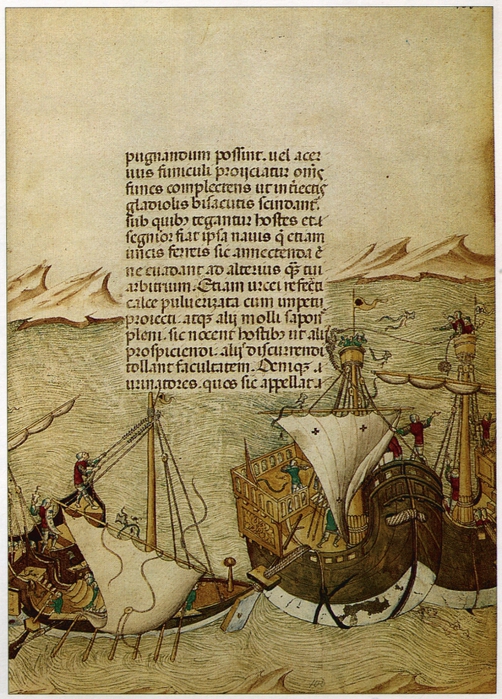 pugnandum possint. uel acer
uus funiculi proijciatur om̄s
funes complectens ut iniectis
gladiolis bisacutis scindant᷑.
sub quib᷒ tegantur hostes et
segnior fiat ipsa nauis q̄ etiam
uncis ferreis sic annectenda ē
ne euadant ad alterius q̄ tui
arbitrium. Etiam urcei referti
calce puluerizata cum impetu
proiecti. atq᷒ alij molli sapon
pleni. sic nocent hostib᷒ ut alij
prospiciendi. alij discurrendi
tollant facultatem. Deniq᷒
urinatores. quos sic appellat